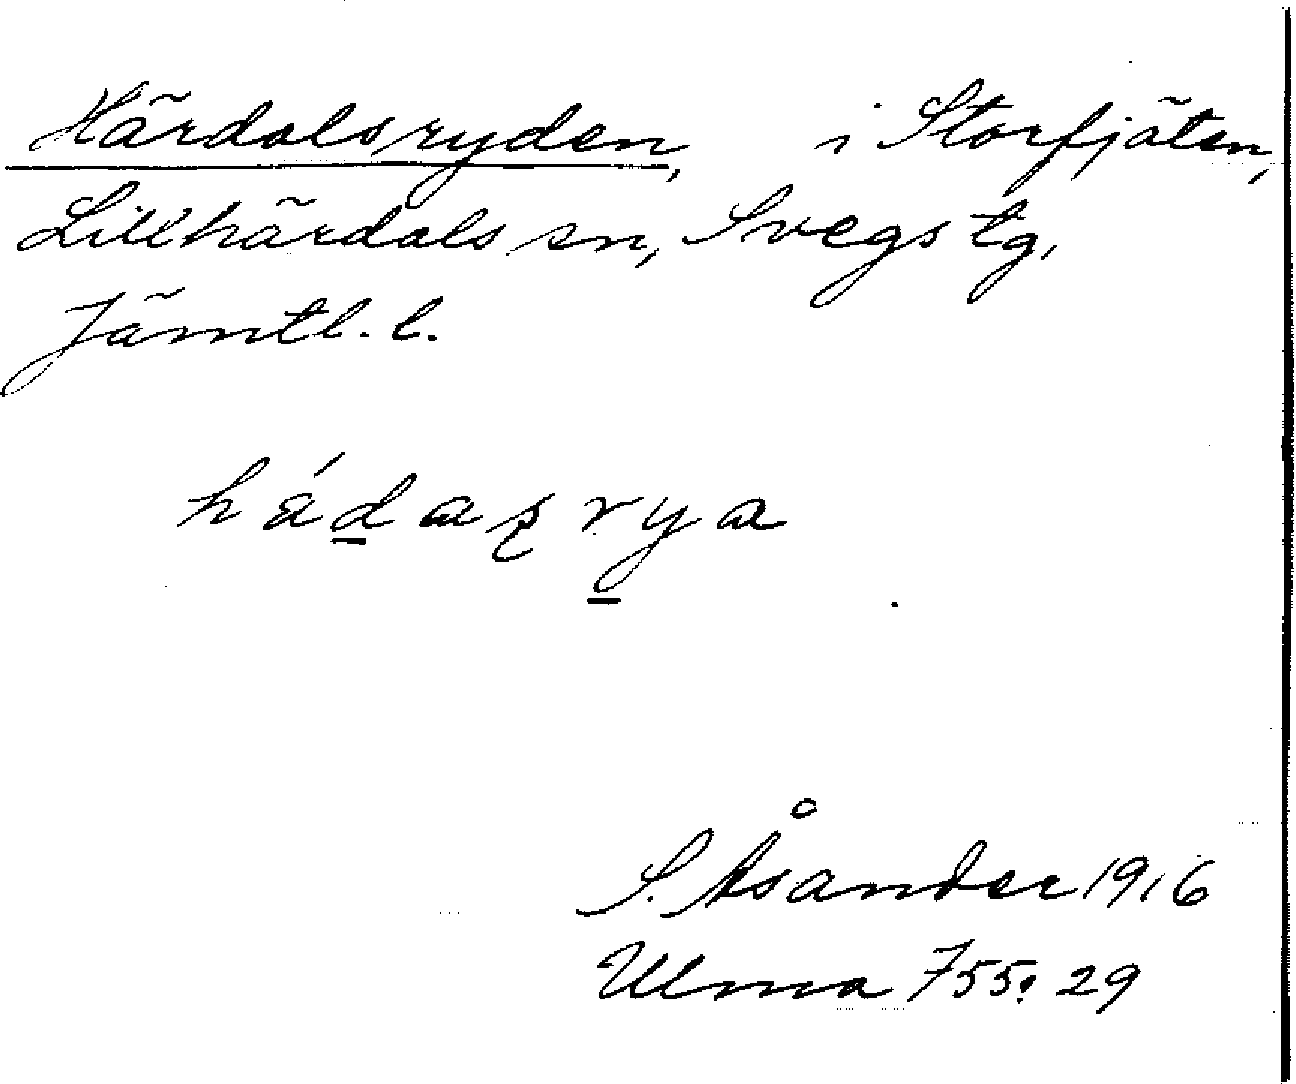 Härdalsryden, i Storfjäten,
Lillhärdals sn, Svegs tg,
Jämtl. l.
hádaʂrya
S. Åsander 1916
Ulma 755:29